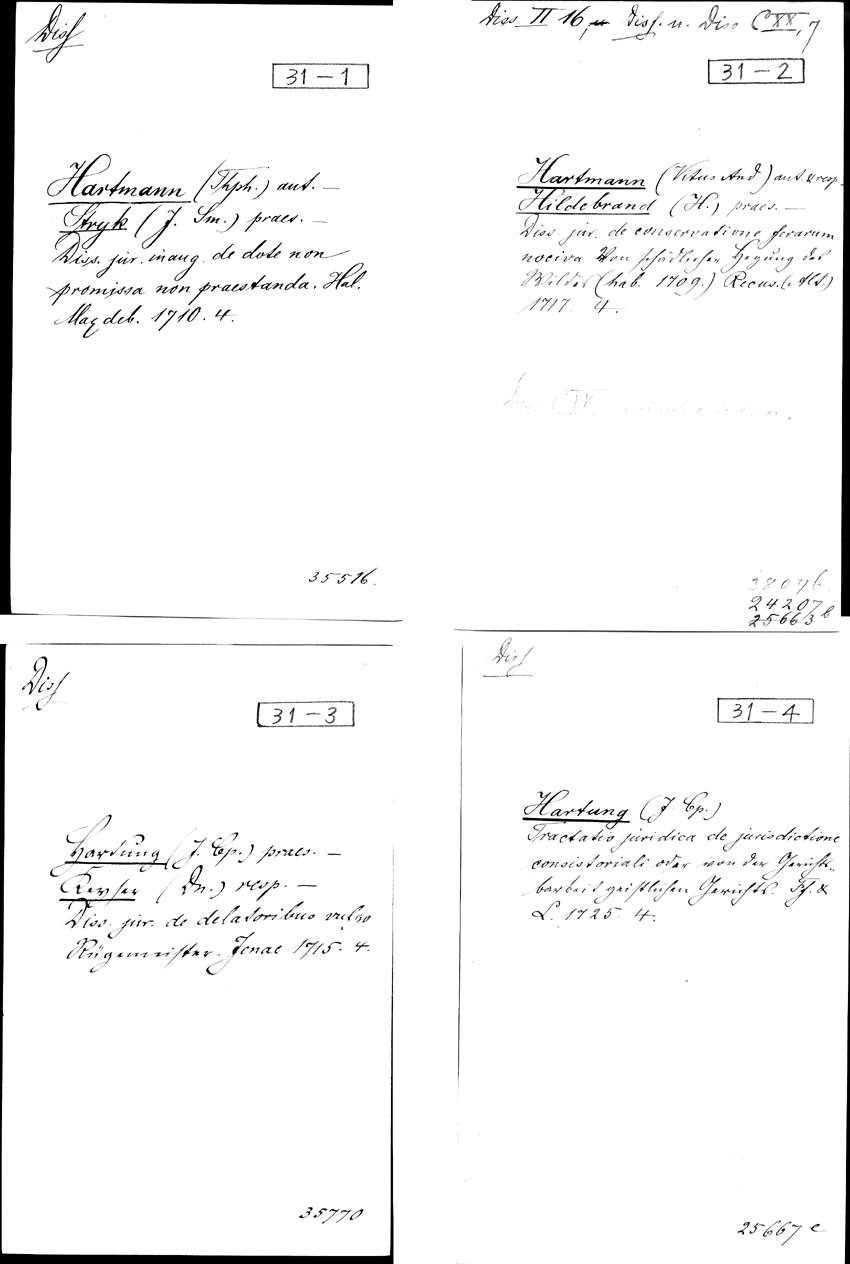 Diss
31-1
Hartmann (Thph.) aut. —
Stryk (J. Sm.) praes. —
Diss. jur. inaug. de dote non
promissa non praestanda. Hal.
Magdeb. 1710. 4.
35516.
Diss II 16, Diss. u. Diss C XX, 7
31-2
Hartmann (Vitus And) aut. & resp.
Hildebrand (H.) praes. —
Diss. jur. de conservatione ferarum
nociva Von schädlicher Hegung des
Wildes (hab. 1709.) Recus. (Alt.)
1717. 4.
38076.
24207
25663 b
Diss
31-3
Hartung (J. Cp.) praes. —
Keyser (Dn.) resp. —
Diss. jur. de delatoribus vulgo
Rügemeister. Jenae 1715. 4.
35770
Diss
31-4
Hartung (J. Cp.)
Tractatio juridica de jurisdictione
consistoriali oder von der Gerichts-
barkeit geistlichen Gerichts. Ff. &
L. 1725. 4.
25667 c